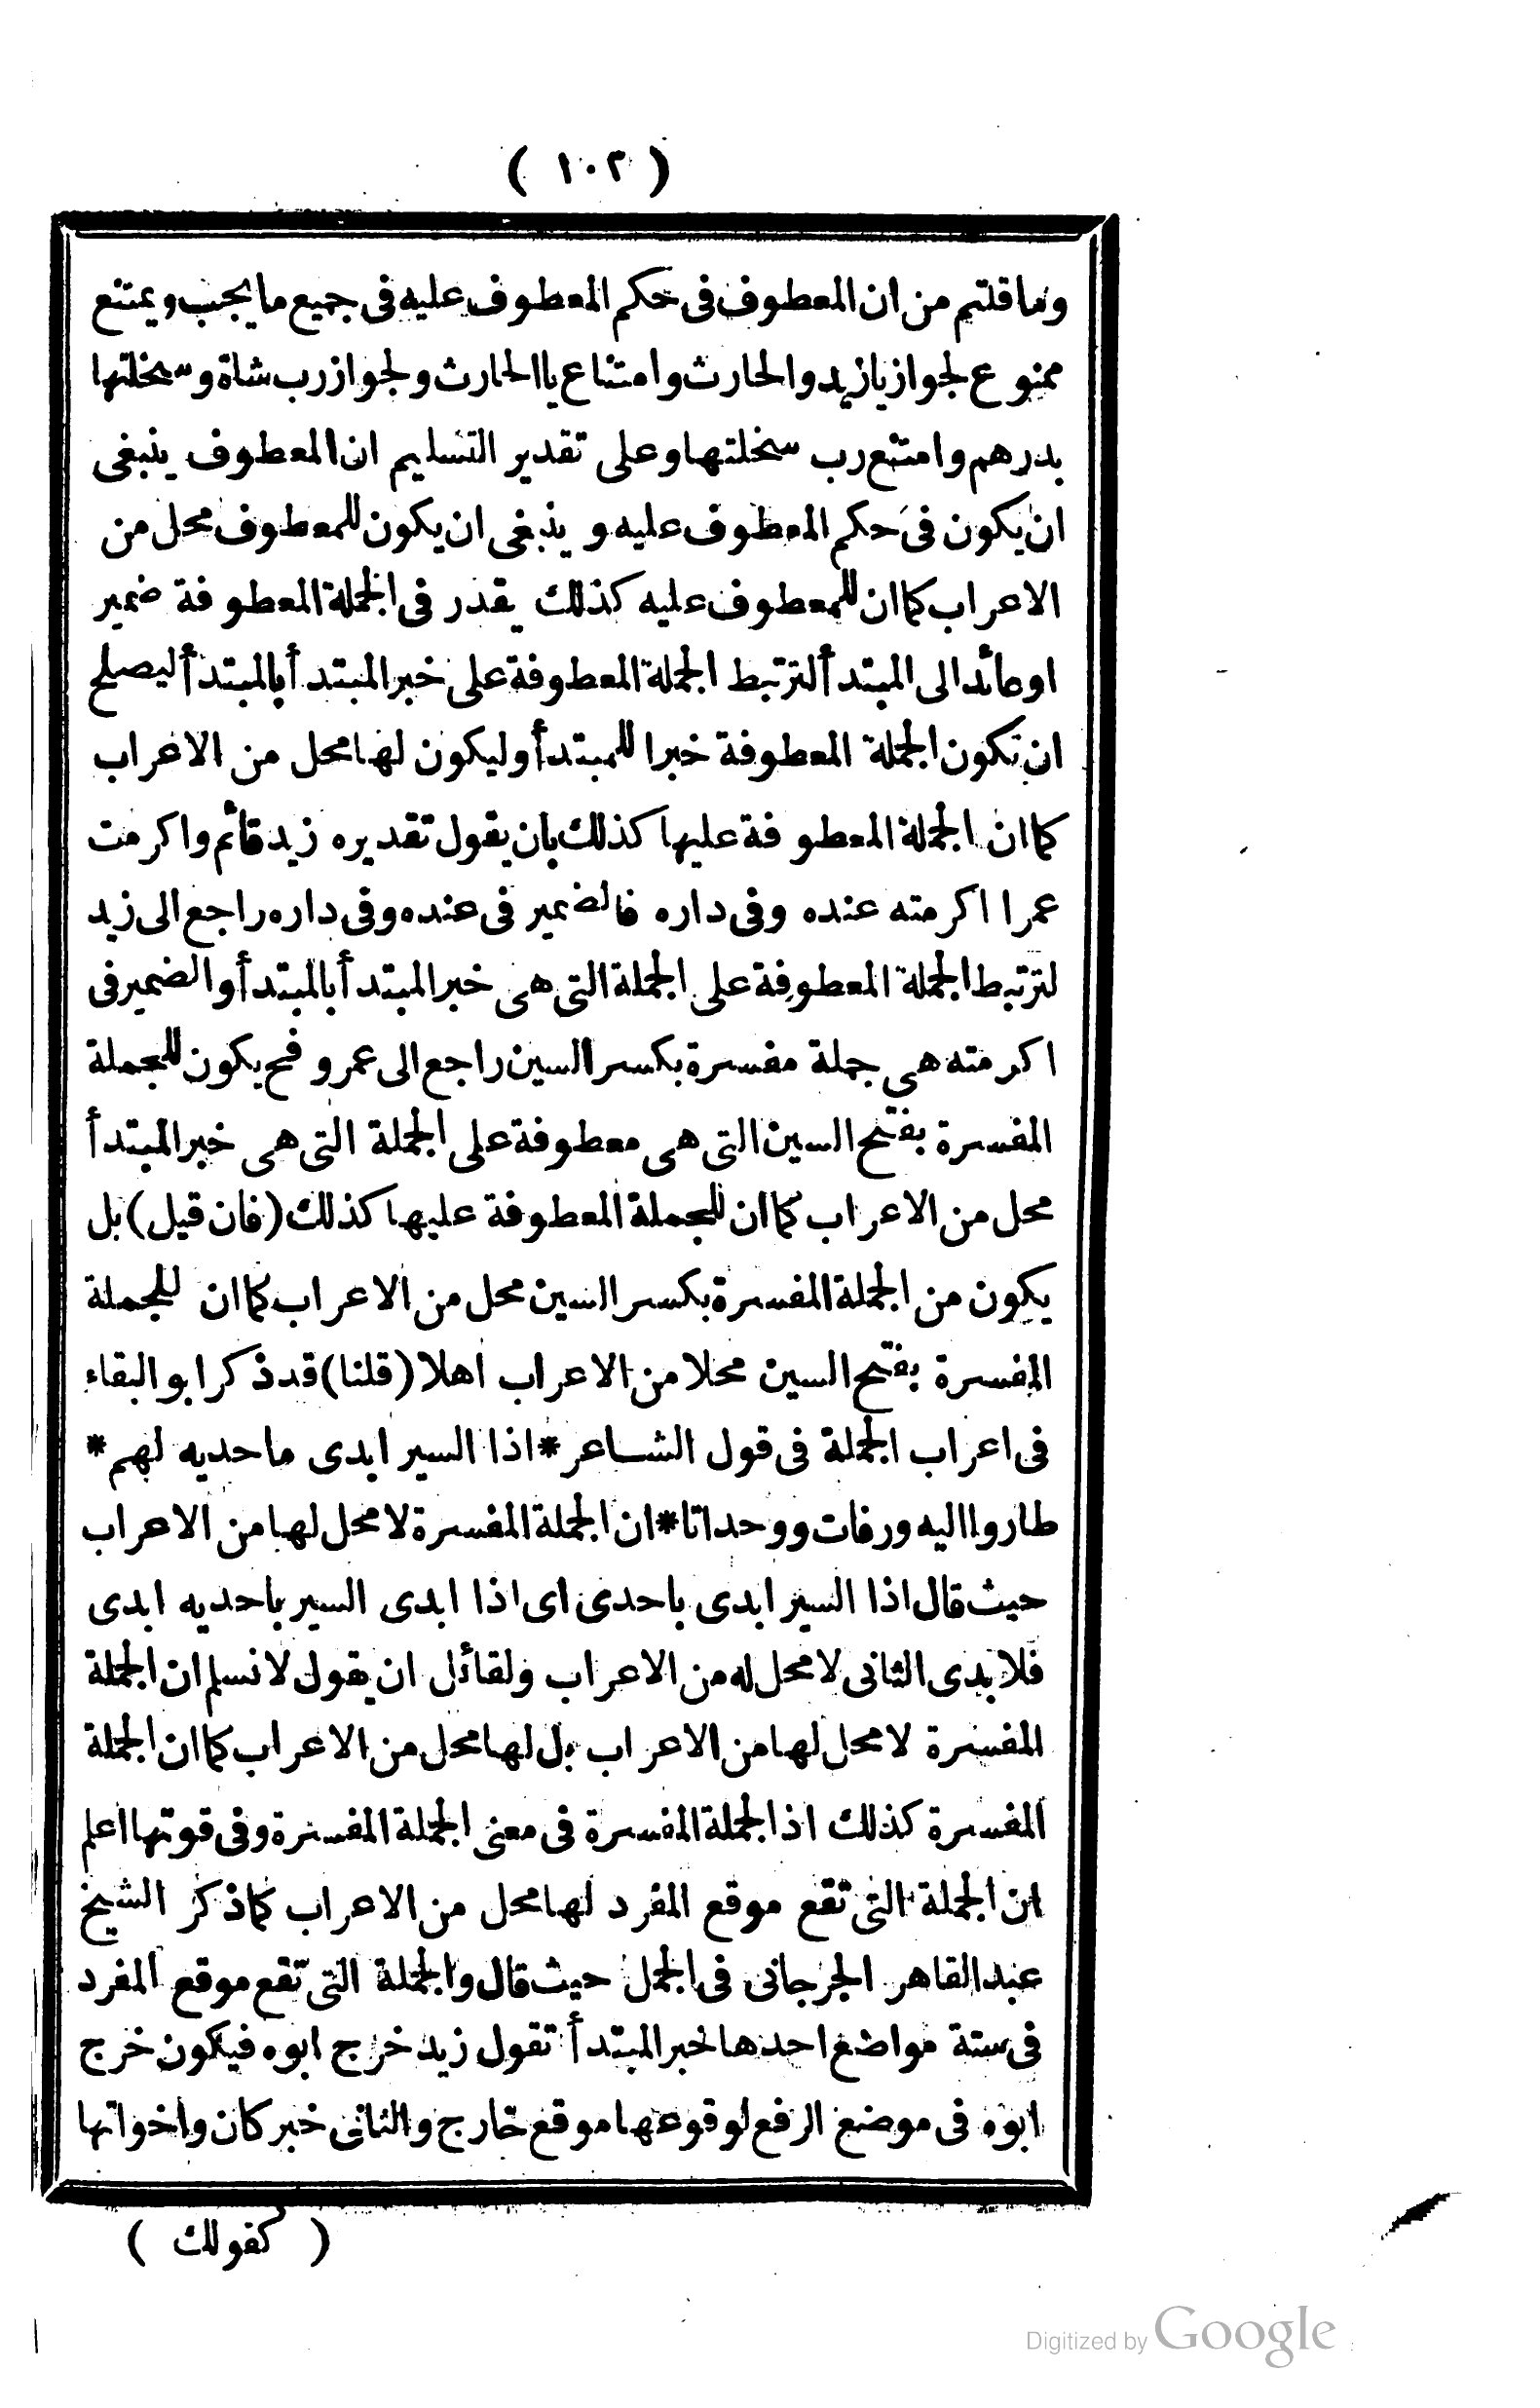 ( ١٠٢ )
وما قلتم من ان المعطوف فى حكم المعطوف عليه فى جميع ما يجب ويمتنع
ممنوع لجواز يازيد والحارث وامتناع ياالحارث ولجواز رب شاة وسخلتها
بدرهم وامتنع رب سخلتها وعلى تقدير التسليم ان المعطوف ينبغى
ان يكون فى حكم المعطوف عليه و ينبغى ان يكون للمعطوف محل من
الاعراب كما ان للمعطوف عليه كذلك يقدر فى الجملة المعطوفة ضمير
اوعائد الى المبتدأ لترتبط الجملة المعطوفة على خبر المبتدأ بالمبتدأ ليصلح
ان تكون الجملة المعطوفة خبرا للمبتدأ وليكون لها محل من الاعراب
كما ان الجملة المعطوفة عليها كذلك بان يقول تقديره زيد قائم واكرمت
عمرا اكرمته عنده وفى داره فالضمير فى عنده وفى داره راجع الى زيد
لترتبط الجملة المعطوفة على الجملة التى هى خبر المبتدأ بالمبتدأ والضمير فى
اكرمته هى جملة مفسرة بكسر السين راجع الى عمرو فح يكون للجملة
المفسرة بفتح السين التى هى معطوفة على الجملة التى هى خبر المبتدأ
محل من الاعراب كما ان للجملة المعطوفة عليها كذلك (فان قيل) بل
يكون من الجملة المفسرة بكسر السين محل من الاعراب كما ان للجملة
المفسرة بفتح السين محلا من الاعراب اهلا (قلنا) قد ذكر ابو البقاء
فى اعراب الجملة فى قول الشاعر * اذا السير ابدى ما حديه لهم *
طاروا اليه ورفات ووحداتا * ان الجملة المفسرة لا محل لها من الاعراب
حيث قال اذا السير ابدى باحدى اى اذا ابدى السير باحديه ابدى
فلا بدى الثانى لا محل له من الاعراب ولقائل ان يقول لا نسلم ان الجملة
المفسرة لا محل لها من الاعراب بل لها محل من الاعراب كما ان الجملة
المفسرة كذلك اذ الجملة المفسرة فى معنى الجملة المفسرة وفى قوتها اعلم
ان الجملة التى تقع موقع المفرد لها محل من الاعراب كما ذكر الشيخ
عبد القاهر الجرجانى فى الجمل حيث قال والجملة التى تقع موقع المفرد
فى ستة مواضع احدها خبر المبتدأ تقول زيد خرج ابوه فيكون خرج
ابوه فى موضع الرفع لوقوعها موقع خارج والثانى خبر كان واخواتها
( كقولك )
Digitized by Google